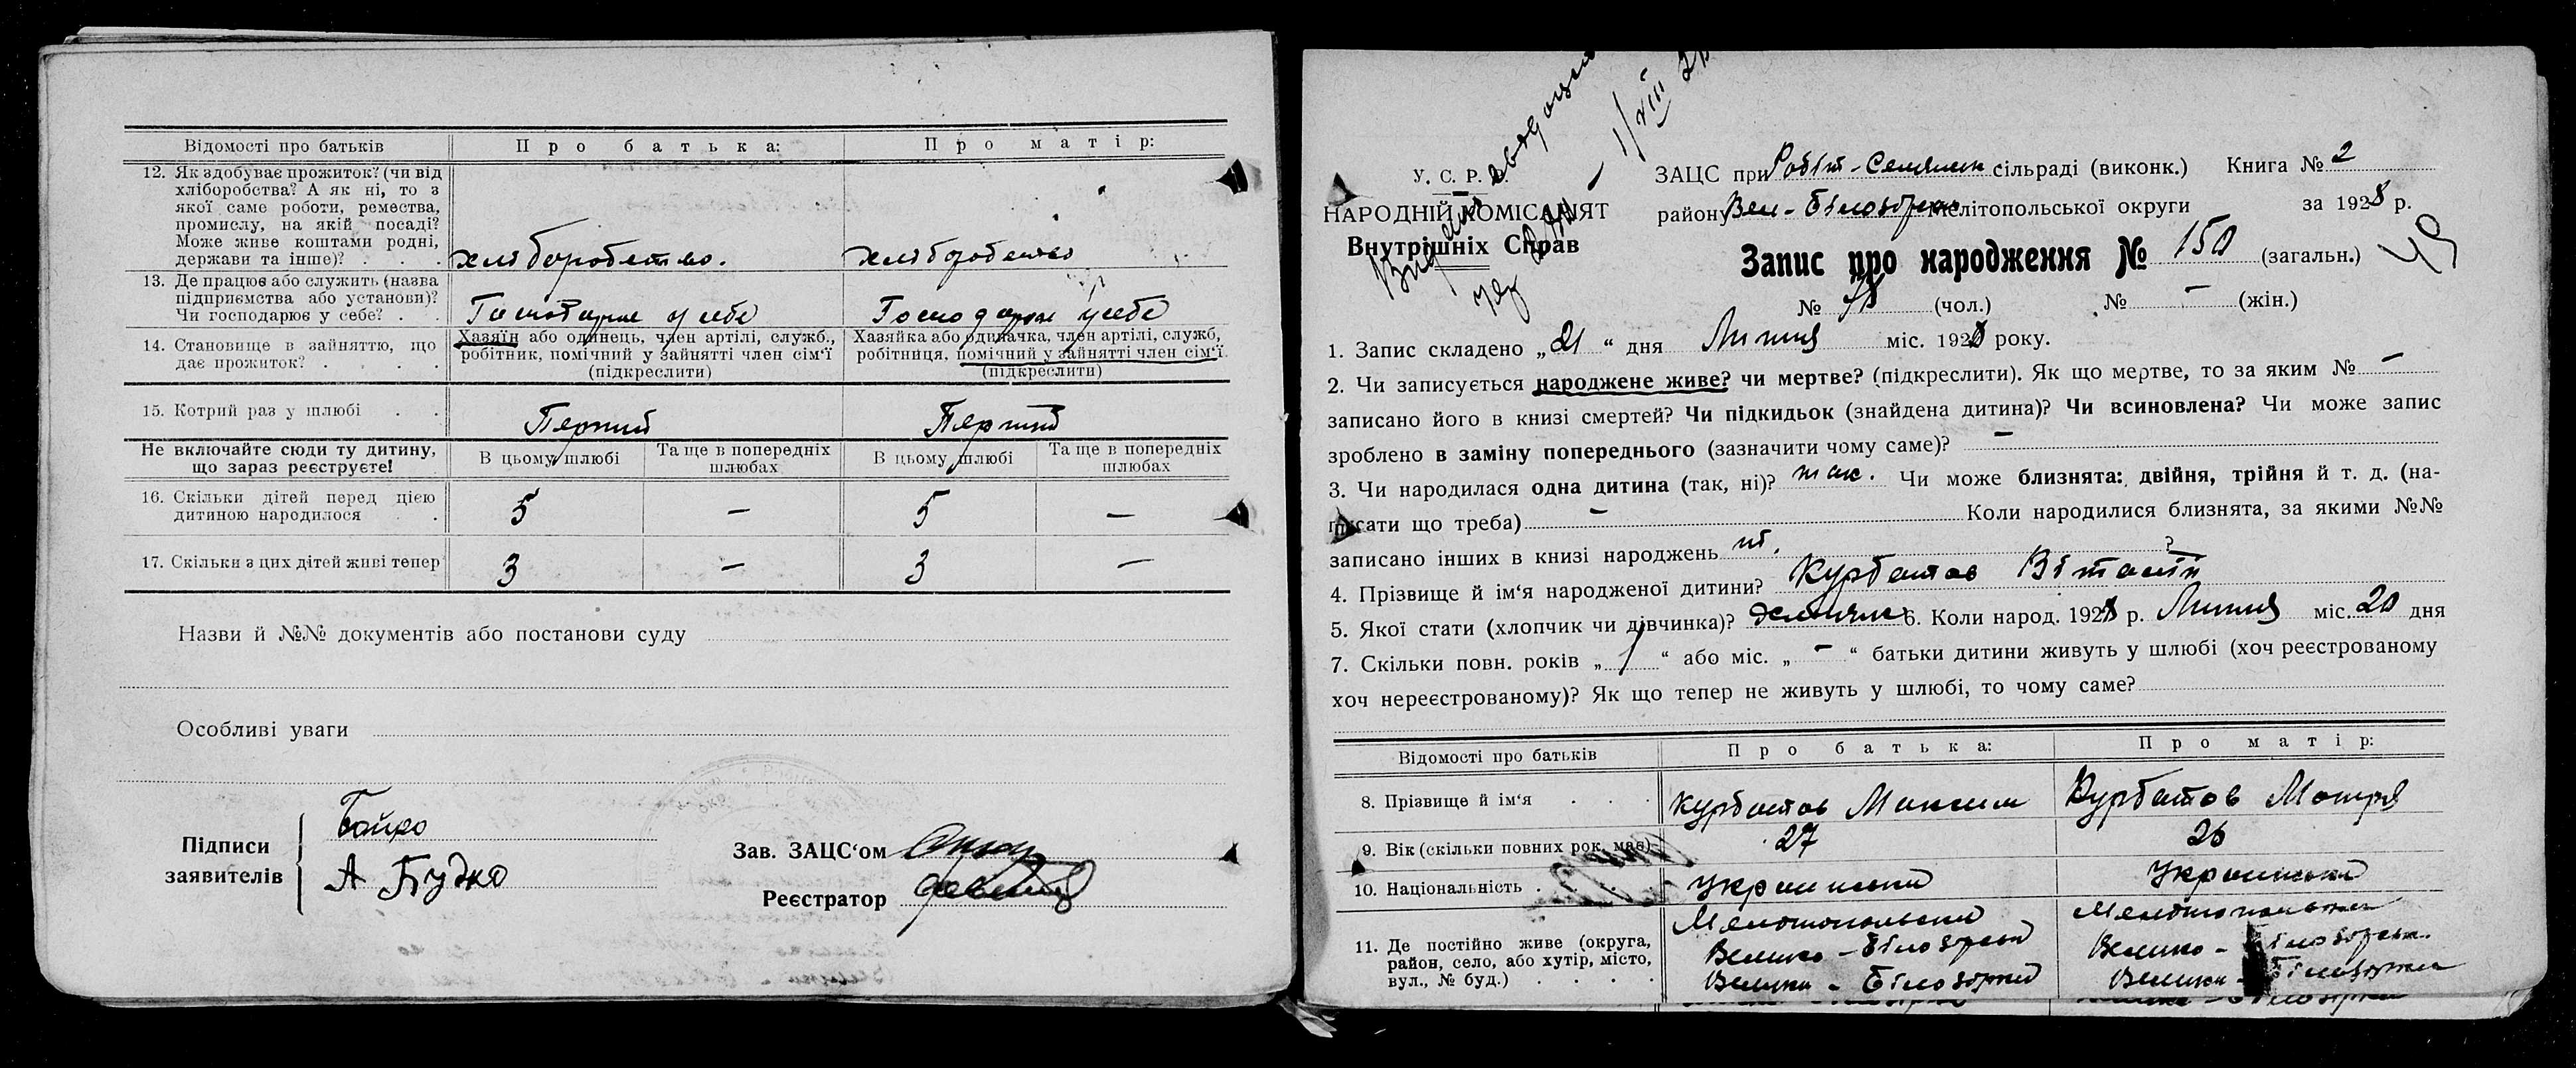 Відомості про батьків | Про батька: | Про матір:
12. Як здобуває прожиток? (чи від
хліборобства? А як ні, то з
якої саме роботи, ремества,
промислу, на якій посаді?
Може живе коштами родні,
держави та інше)? . . . хліборобство. | хліборобство
13. Де працює або служить (назва
підприємства або установи)?
Чи господарює у себе? . . Господарює у себе | Господарює у себе
14. Становище в зайняттю, що
дає прожиток? . . . .
Хазяїн або одинець, член артілі, служб.,
робітник, помічний у зайнятті член сім'ї
(підкреслити)
Хазяйка або одиначка, член артілі, служб,
робітниця, помічний у зайнятті член сім'ї
(підкреслити)
15. Котрий раз у шлюбі . . Перший | Перший
Не включайте сюди ту дитину,
що зараз реєструєте!
В цьому шлюбі | Та ще в попередніх шлюбах | В цьому шлюбі | Та ще в попередніх шлюбах
16. Скільки дітей перед цією
дитиною народилося . . 5 | — | 5 | —
17. Скільки з цих дітей живі тепер 3 | — | 3 | —
Назви й №№ документів або постанови суду
Особливі уваги
Підписи
заявителів
Бойко
А Будко
Зав. ЗАЦС'ом
Реєстратор
У. С. Р. Р.
НАРОДНІЙ КОМІСАРІЯТ
Внутрішніх Справ
1/VIII 28
ЗАЦС при Робіт-Селянськ сільраді (виконк.) Книга № 2
району Вел-Білозірськ Мелітопольської округи за 1928 р.
Запис про народження № 150 (загальн.) 49
№ (чол.) № — (жін.)
1. Запис складено „21“ дня Липня міс. 1928 року.
2. Чи записується народжене живе? чи мертве? (підкреслити). Як що мертве, то за яким № —
записано його в книзі смертей? Чи підкидьок (знайдена дитина)? Чи всиновлена? Чи може запис
зроблено в заміну попереднього (зазначити чому саме)? —
3. Чи народилася одна дитина (так, ні)? так. Чи може близнята: двійня, трійня й т. д. (на-
писати що треба) — Коли народилися близнята, за якими №№
записано інших в книзі народжень ні. ?
4. Прізвище й ім'я народженої дитини? Курбатов Віталій
5. Якої статі (хлопчик чи дівчинка)? хлопчик 6. Коли народ. 1928 р. Липня міс. 20 дня
7. Скільки повн. років „ “ або міс. „ — “ батьки дитини живуть у шлюбі (хоч реєстрованому
хоч нереєстрованому)? Як що тепер не живуть у шлюбі, то чому саме?
Відомості про батьків | Про батька: | Про матір:
8. Прізвище й ім'я . . . Курбатов Максим | Курбатов Мотря
9. Вік (скільки повних рок. має) 27 | 26
10. Національність . . . Український | Українська
11. Де постійно живе (округа,
район, село, або хутір, місто,
вул., № буд.) . . . .
Мелітопольська | Мелітопольська
Велико-Білозірськ | Велико-Білозірськ.
Велика-Білозірка | Велика-Білозірка